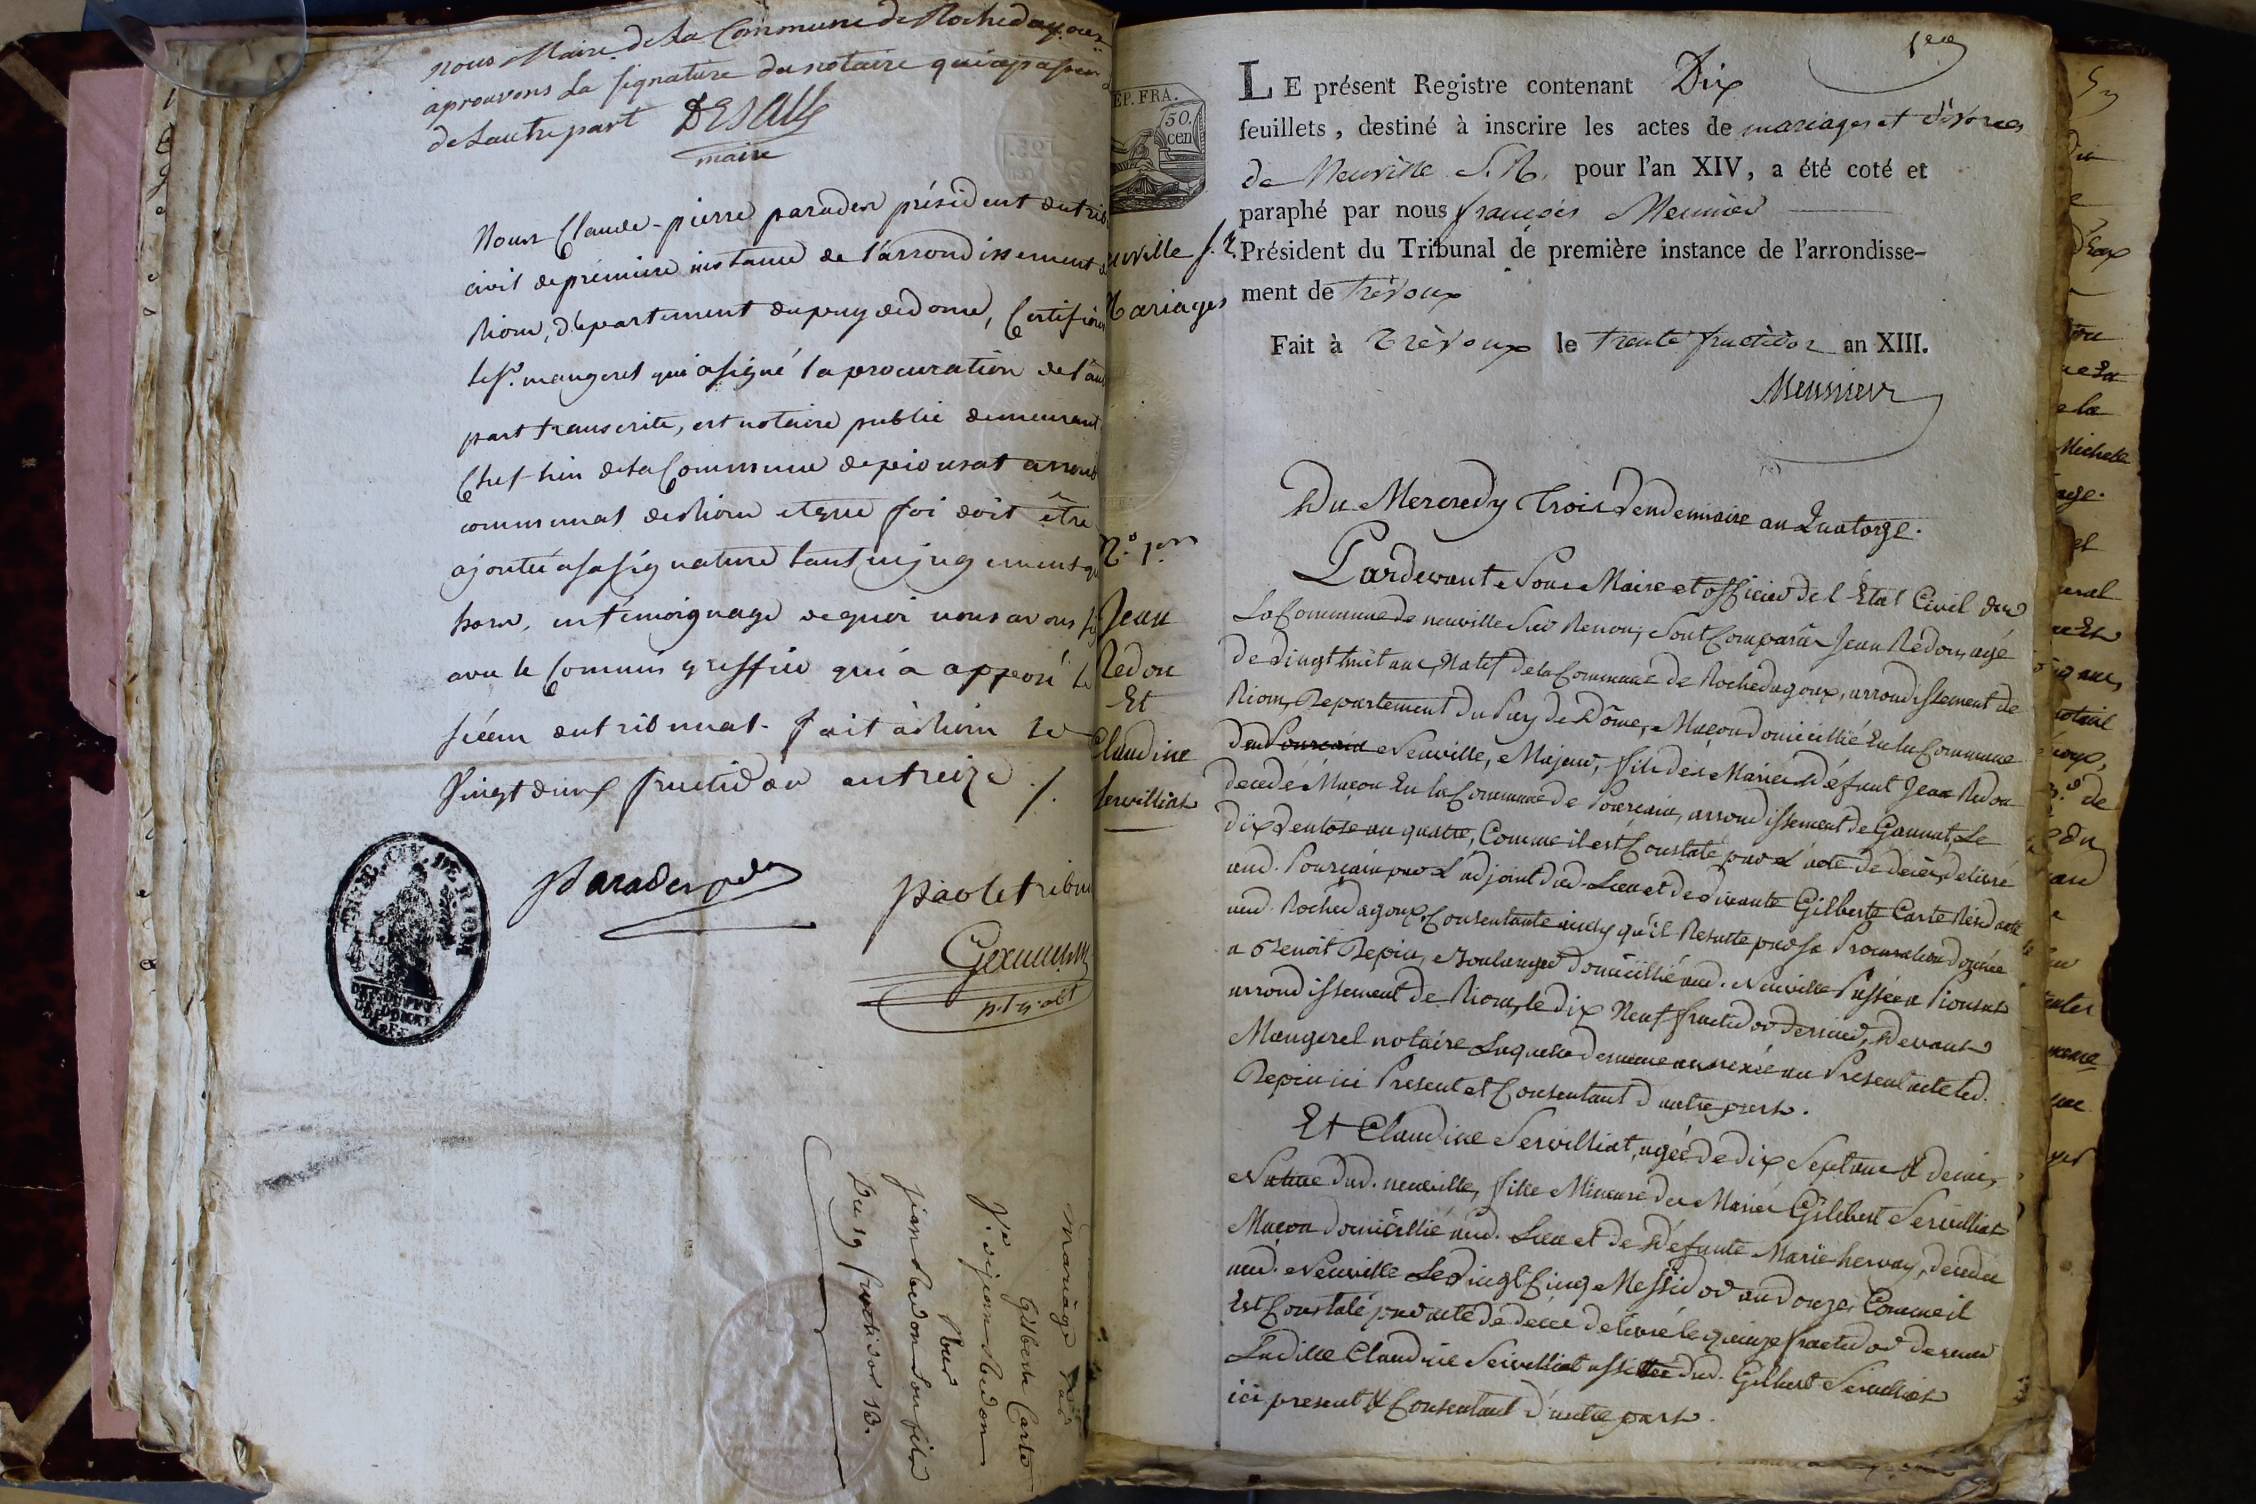 nous Maire de la Commune de Rochedagoux
aprouvons la signature du notaire qui apasser
de lautre part DESALLE
maire
Nous Claude-pierre parades président du trib
civil de première instance de l'arrondissement de
Riom, département du puy de dome, Certifions
le Sr. mangerel qui a signé la procuration de l'au
part transcrite, est notaire public demeurant
Chef-lieu de la Commune de pionsat arrond
communal de Riom et que foi doit être
ajoutée a sa signature tant en jugement qu
hors, en témoignage de quoi nous avons
avec le Commis greffier qui a apposé le
sceau du tribunal. fait à Riom le
vingt deux fructidor an treize ./.
TRIB. CIV. DE RIOM
DEP. DU PUY
DE DOME
parades pdt
par le tribu
mariage
Gilberte Carte
Ve. de jean Redon
Pour
jean Redon son fils
Du 19 fructidor 13.
REP. FRA.
50.
cen
Neuville S. R.
Mariages
N.o 1er
Jean
Redon
Et
Claudine
Servilliat
1er
LE présent Registre contenant Dix
feuillets, destiné à inscrire les actes de mariages et divorces
de Neuville S. R. pour l'an XIV, a été coté et
paraphé par nous françois Meunier
Président du Tribunal de première instance de l'arrondisse-
ment de Trévoux
Fait à Trévoux le Trente fructidor an XIII.
Meunier
Du Mercredy Trois Vendemiaire an Quatorze.
Pardevant Nous Maire et officier de l'État Civil de
La Commune de neuville sur Renon, sont Comparus Jean Redon, agé
de vingt huit ans, Natif de la Commune de Rochedagoux, arrondissement de
Riom, Departement du Puy de Dôme, Maçon domicillié En la Commune
de Neuville, Majeur, fils des Mariés Défunt Jean Redon
décedé Maçon En la Commune de Pourcain, arrondissement de Gannat, Le
dix ventose an quatre, Comme il est Constaté par L'acte de décés, délivré
aud. Pourcain par L'adjoint dud. Lieu et de vivante Gilberte Carte Résidante
aud. Rochedagoux, Consentante ainsy qu'il Resulte par sa Procuration donnée
a Benoit Pepin, Boulanger domicillié aud. Neuville Passée a Pionsat
arrondissement de Riom, le dix Neuf fructidor dernier, devant
Mangerel notaire Laquelle demeure annexée au Present acte led.
Pepin ici Present et Consentant d'autre part.
Et Claudine Servilliat, agée de dix Sept ans & demi,
Native dud. neuville, fille Mineure des Mariés Gilibert Servilliat
Maçon domicillié aud. Lieu et de Défunte Marie hervay, decedée
aud. Neuville Le vingt Cinq Messidor an douze, Comme il
Est Constaté par acte de décés délivré le quinze fructidor dernier
Ladite Claudine Servilliat assistée dud. Gilbert Servilliat
ici present & Consentant d'autre part.